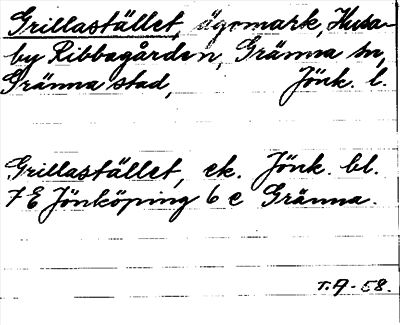 Grillastället, ägomark, Husa-
by Ribbagården, Gränna sn,
Gränna stad, Jönk. l.
Grillastället, ek. Jönk. bl.
7 E Jönköping 6 e Gränna.
T.A-58.